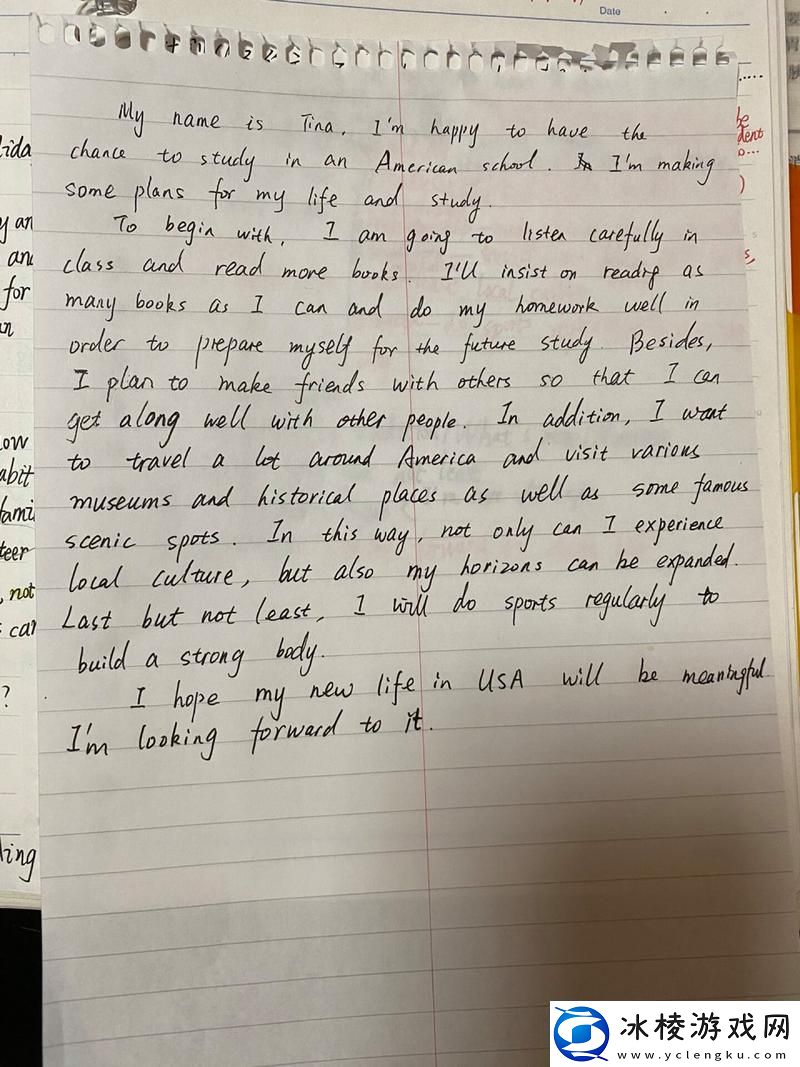 Date
My name is Tina, I'm happy to have the
chance to study in an American school. I'm making
some plans for my life and study.
To begin with, I am going to listen carefully in
class and read more books. I'll insist on readig as
many books as I can and do my homework well in
order to prepare myself for the future study. Besides,
I plan to make friends with others so that I can
get along well with other people. In addition, I want
to travel a lot around America and visit various
museums and historical places as well as some famous
scenic spots. In this way, not only can I experience
local culture, but also my horizons can be expanded.
Last but not least, I will do sports regularly to
build a strong body.
I hope my new life in USA will be meaningful
I'm looking forward to it.
lida
y an
and
for
ow
abit
fami
teer
, not
s can
?
ling
be
dent
冰棱游戏网
www.yclengku.com